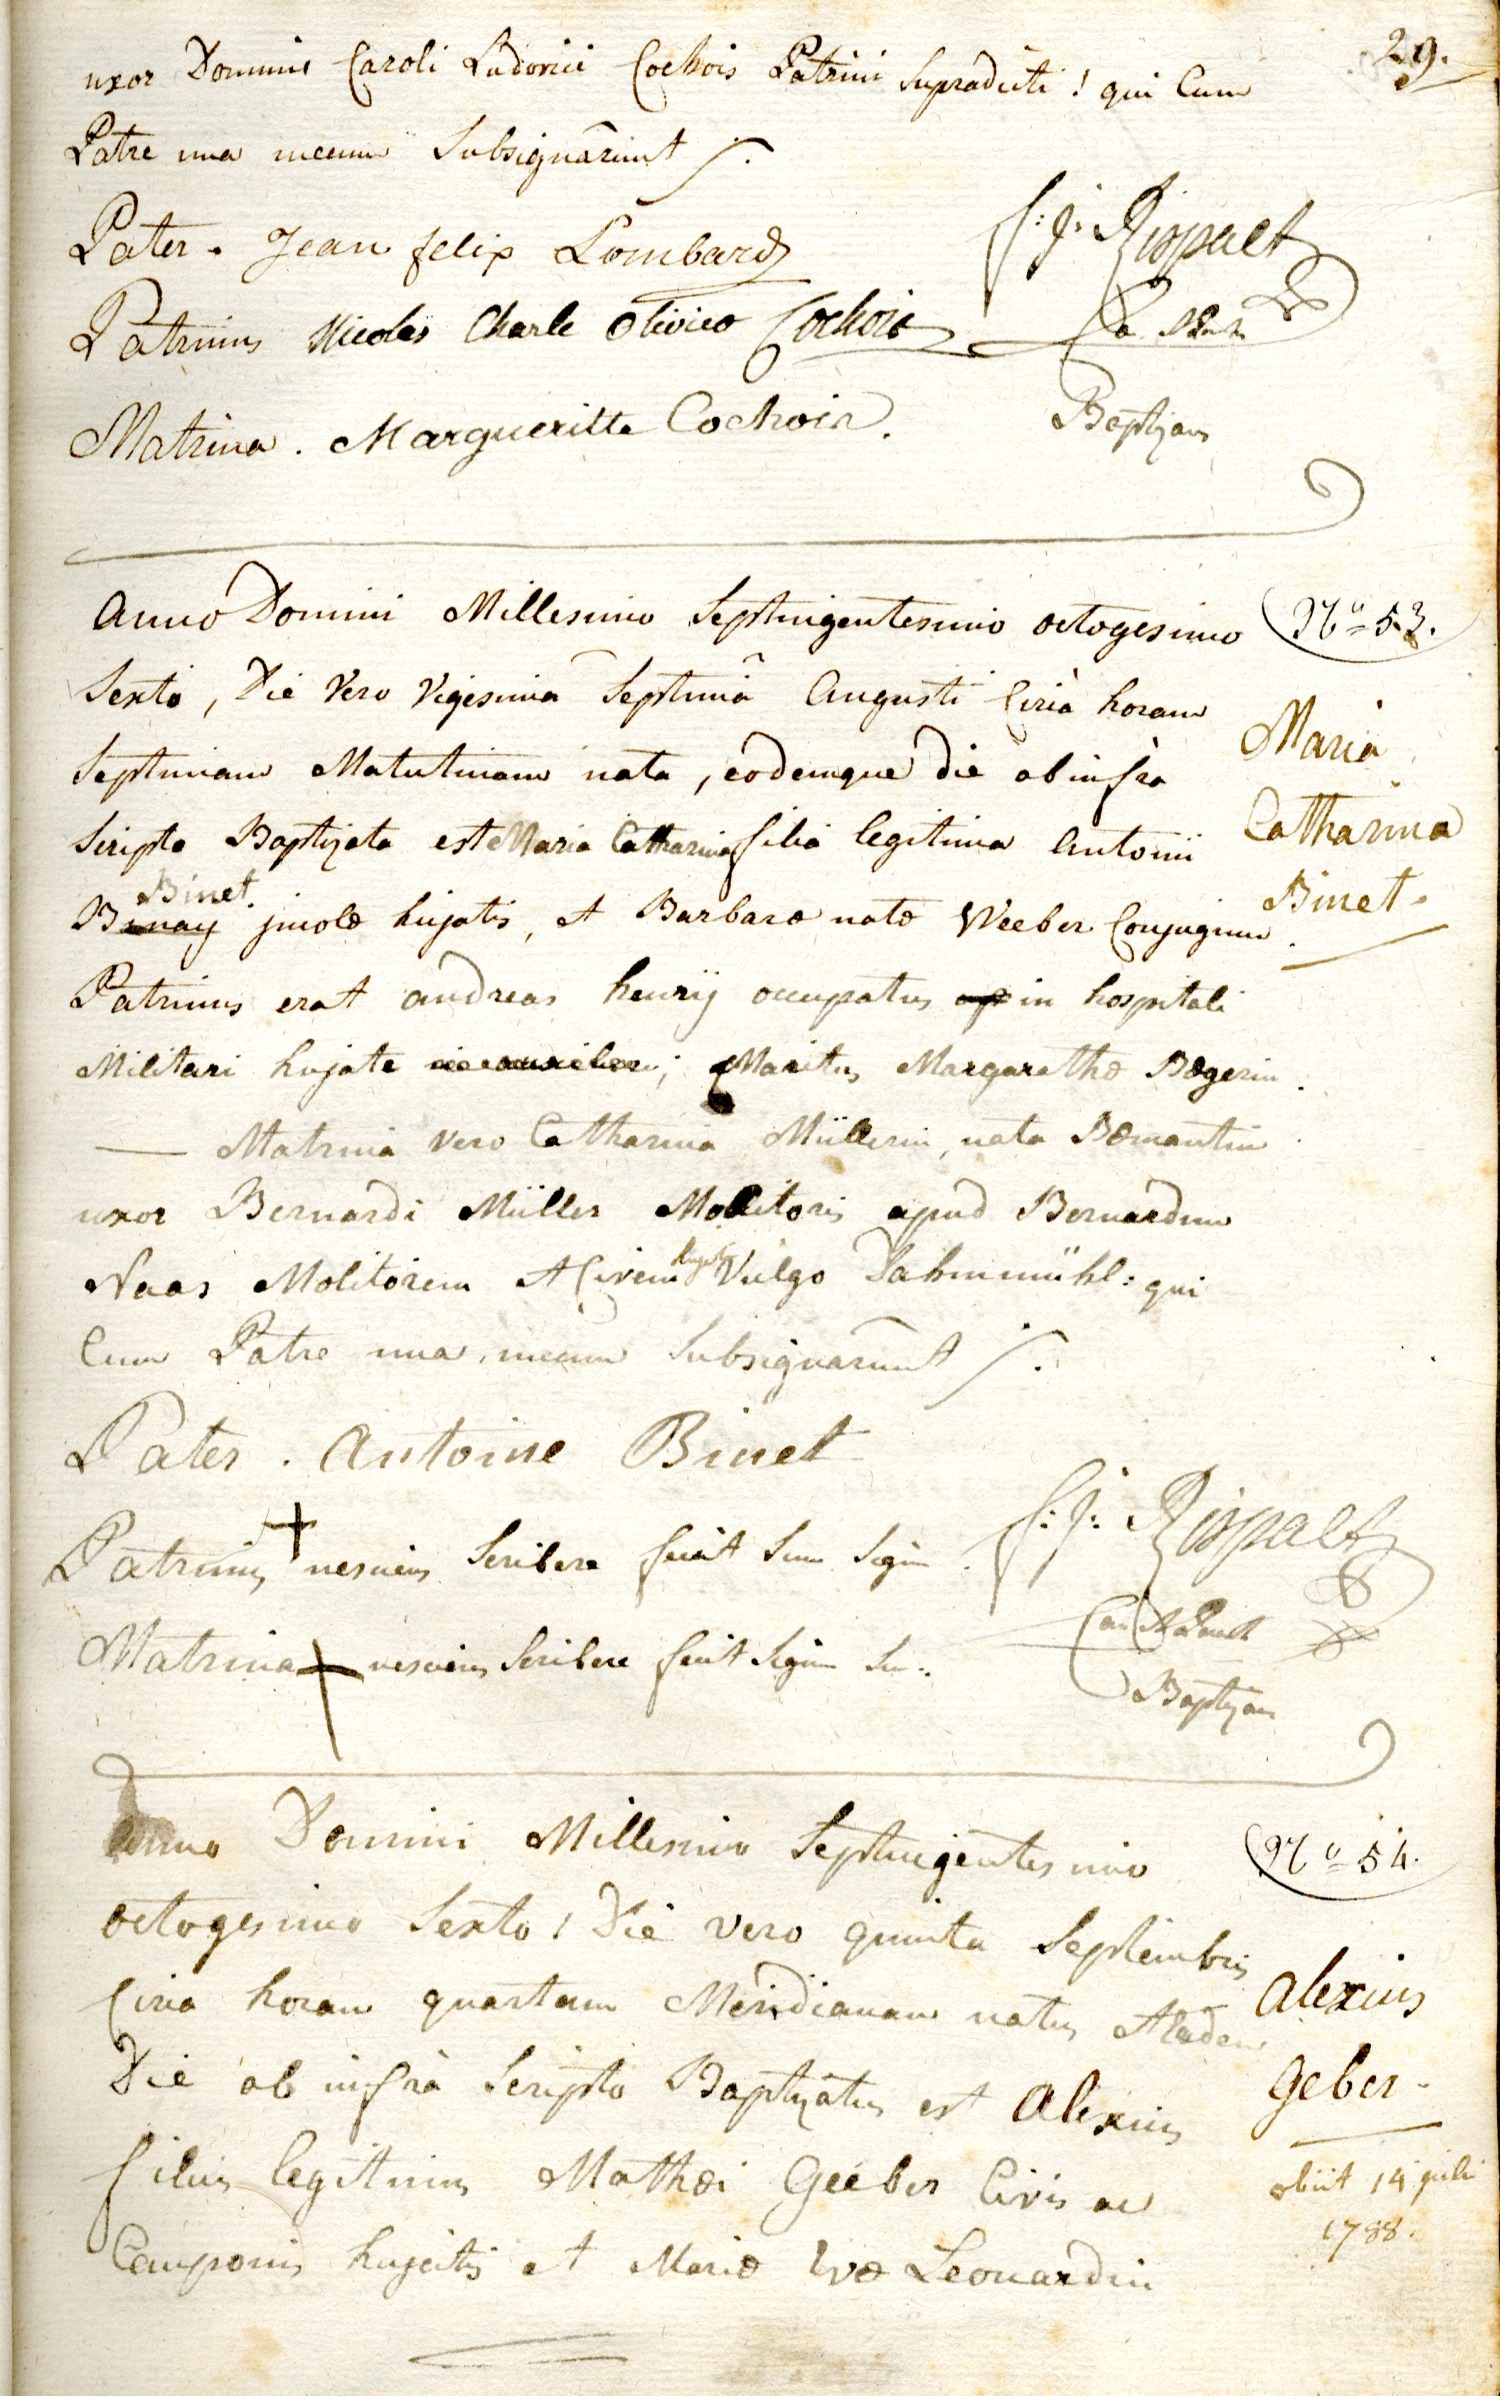 29.
uxor Domini Caroli Ludovici Cochois Patrini supradicti! qui Cum
Patre una mecum Subsignârunt /.
Pater. Jean felix Lombard
f: j: Rispalt
Patrinus Nicolas Charle Cochois
Matrina. Margueritte Cochois.
Baptizans
Anno Domini Millesimo Septingentesimo octogesimo
Nº 53.
Sexto, Die Vero Vigesima Septimâ Augusti Circà horam
Septimam Matutinam nata, eodemque die ab infra
Scripto Baptizata est Maria Catharina filia legitima Antonii
Maria
Catharina
Binet.
Binet.
Binay incolæ hujatis, et Barbaræ natæ Weeber Conjugum.
Patrinus erat andreas henrij occupatus in hospitali
Militari hujate ; Maritus Margarethæ Bægerin.
— Matrina vero Catharina Müllerin, nata Bæmantin
uxor Bernardi Müller Mollitoris apud Bernardum
Naas Molitorem et Civem Vulgo Dahmmühl: qui
Cum Patre una mecum Subsignarûnt /.
Pater. Antoine Binet
Patrinus + nesciens Scribere fecit Suum Signum.
f: j: Rispalt
Matrina + nesciens Scribere fecit Signum Su:.
Baptizans
Anno Domini Millesimo Septingentesimo
Nº 54.
octogesimo Sexto, Die vero quinta Septembris
Circa horam quartam Meridianam natus et eâdem
Die ab infrà Scripto Baptizatus est Alexius
Alexius
Geber.
filius legitimus Mathæi Geeber Civis ac
Cauponis hujatis et Mariæ Evæ Leonardin
obiit 14 julii
1788.